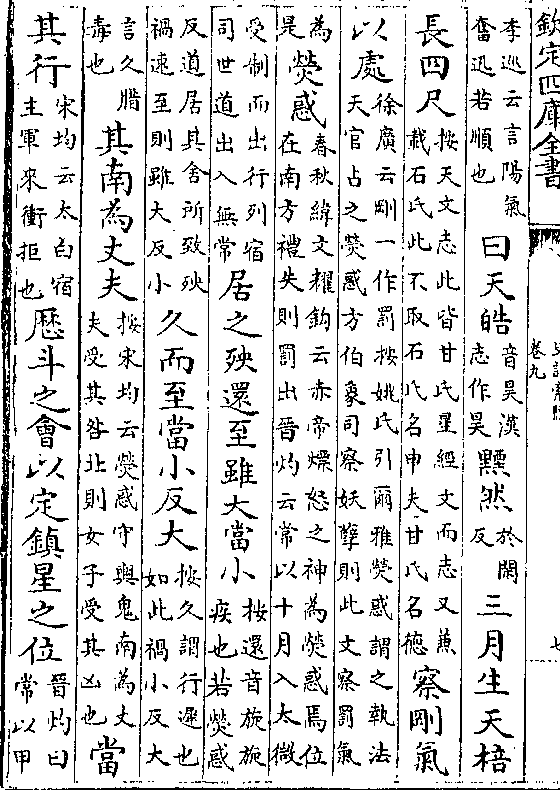 欽定四庫全書
卷九
李巡云言陽氣奮迅若順也曰天皓音昊漢志作昊黫然於閑反三月生天棓
長四尺按天文志此皆甘氏星經文而志又兼載石氏此不取石氏名申夫甘氏名德察剛氣
以處徐廣云剛一作罰按姚氏引爾雅熒惑謂之執法天官占之熒惑方伯象司察妖孽則此文察罰氣
為是熒惑春秋緯文耀鈎云赤帝熛怒之神為熒惑焉位在南方禮失則罰出晉灼云常以十月入太微
受制而出行列宿司世道出入無常居之殃還至雖大當小按還音旋旋疾也若熒惑
反道居其舍所致殃禍速至則雖大反小久而至當小反大按久謂行遲也如此禍小反大
言久腊毒也其南為丈夫按宋均云熒惑守輿鬼南為丈夫受其咎北則女子受其凶也當
其行宋均云太白宿主軍來衝拒也歴斗之會以定鎮星之位晉灼曰常以甲